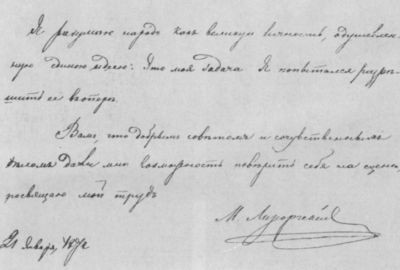 Я разумѣю народъ какъ великую личность, одушевлен-
ную единою идеею: Это моя задача Я попытался разрѣ-
шить ее въ оперѣ.
Вамъ, что добрымъ совѣтомъ и сочувственнымъ
дѣломъ дали мнѣ возможность повѣрить себя на сценѣ,
посвящаю мой трудъ
М. Мусоргскій
21 Января,